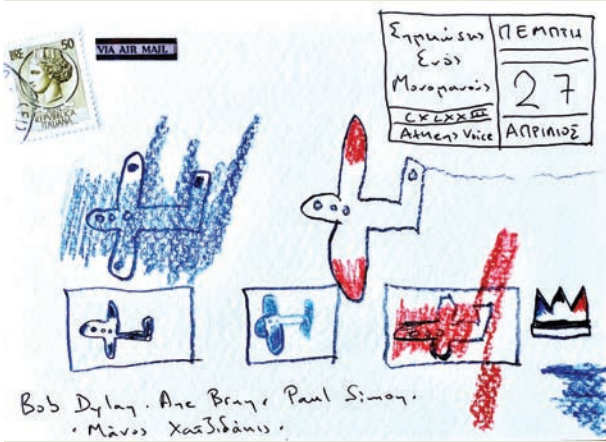 50
ITALIANA
VIA AIR MAIL
Σημειώσεις
Ενός
Μονομανούς
Athens Voice
ΠΕΜΠΤΗ
27
ΑΠΡΙΛΙΟΣ
Bob Dylan. Ane Brun. Paul Simon.
. Μάνος Χατζιδάκις.